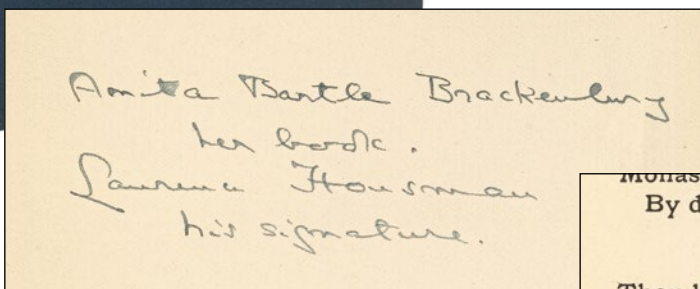 Anita Bartle Brackenbury
her book.
Laurence Housman
his signature.
By d